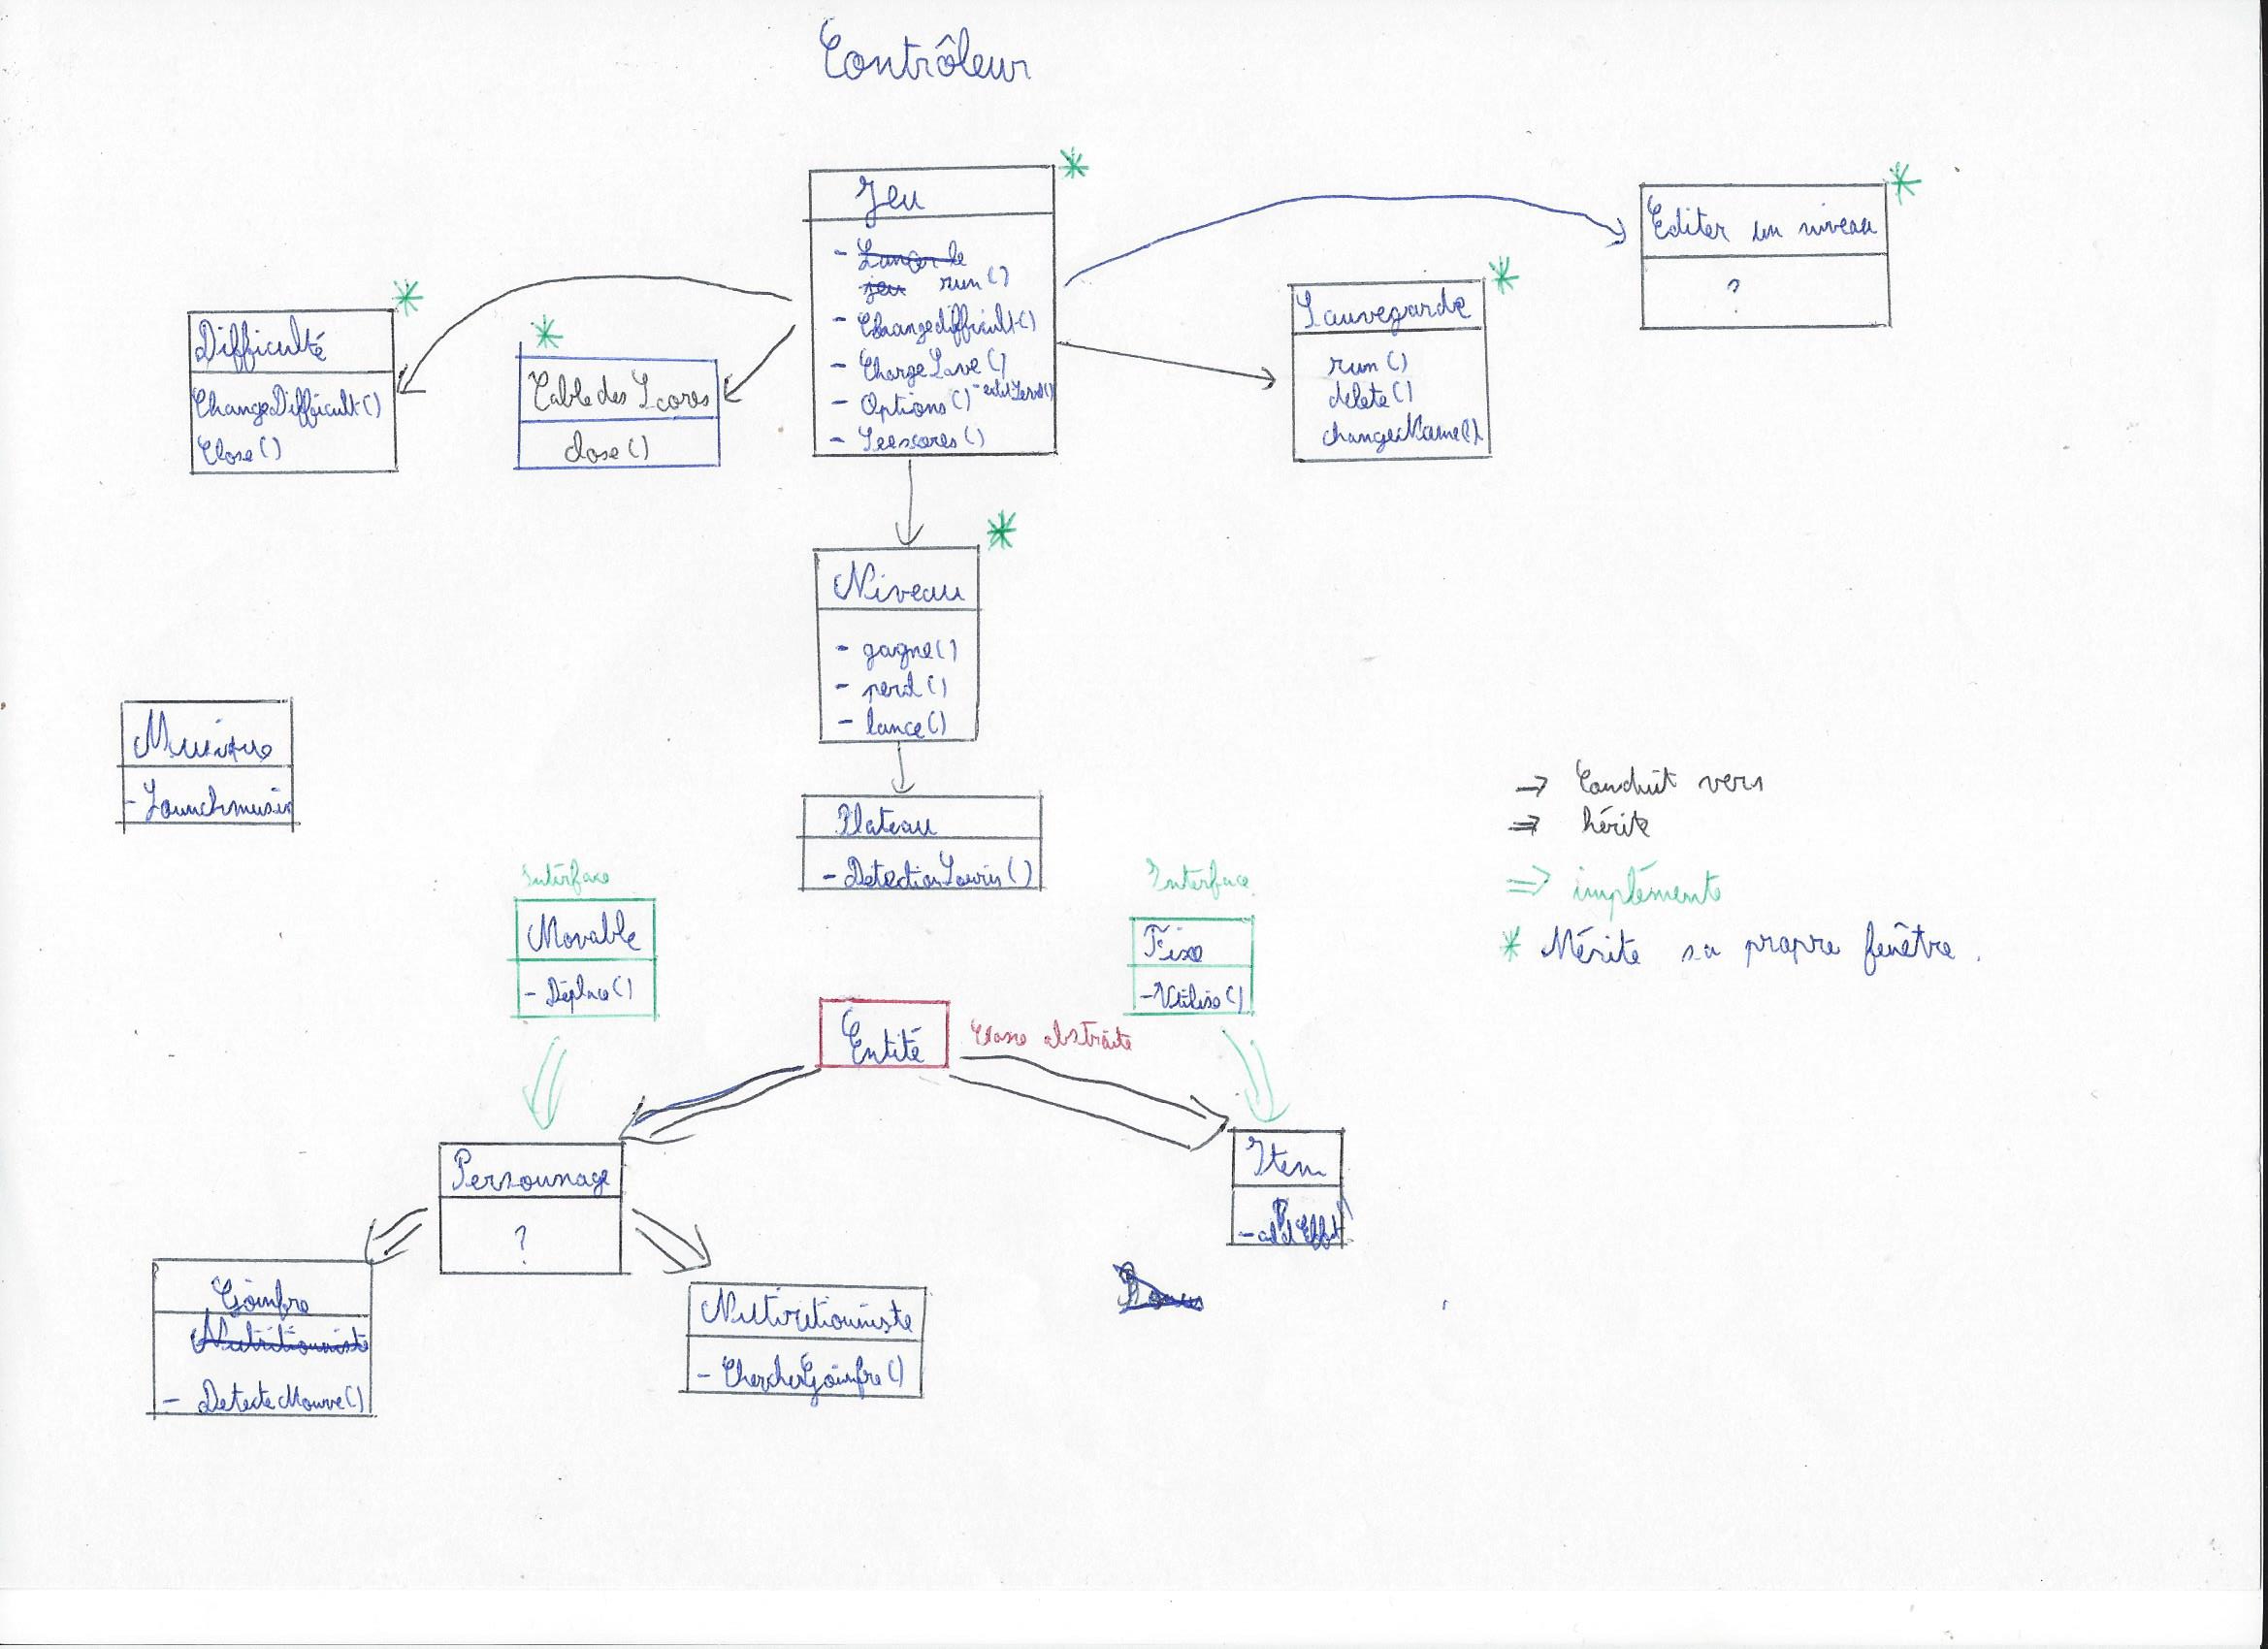 Contrôleur
Jeu
- Lancer le
jeu run()
- Changedifficult()
- ChargeSave()
- Options() - editLevel()
- Seescores()
Editer un niveau
?
Sauvegarde
run()
delete()
changeName()
Difficulté
ChangeDifficult()
Close()
Table des Scores
close()
Niveau
- gagne()
- perd()
- lance()
Musique
- Launchmusic
Plateau
- DetectionSouris()
→ Conduit vers
⇒ hérite
⇒ implémente
* Mérite sa propre fenêtre.
Interface
Movable
- Déplace()
Interface
Fixe
- Utilise()
Entité
Classe abstraite
Personnage
?
Item
- addEffet
Goinfre
Nutritionniste
- DetecteMouve()
Nutritionniste
- ChercherGoinfre()